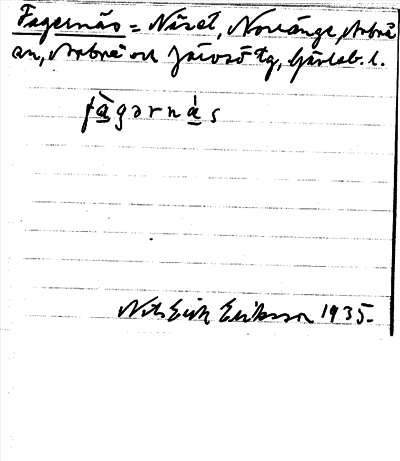 Fagernäs = Näset, Norränge, Arbrå
sn, Arbrå och Järvsö tg, Gävleb. l.
fàgərnás
Nils Erik Eriksson 1935.